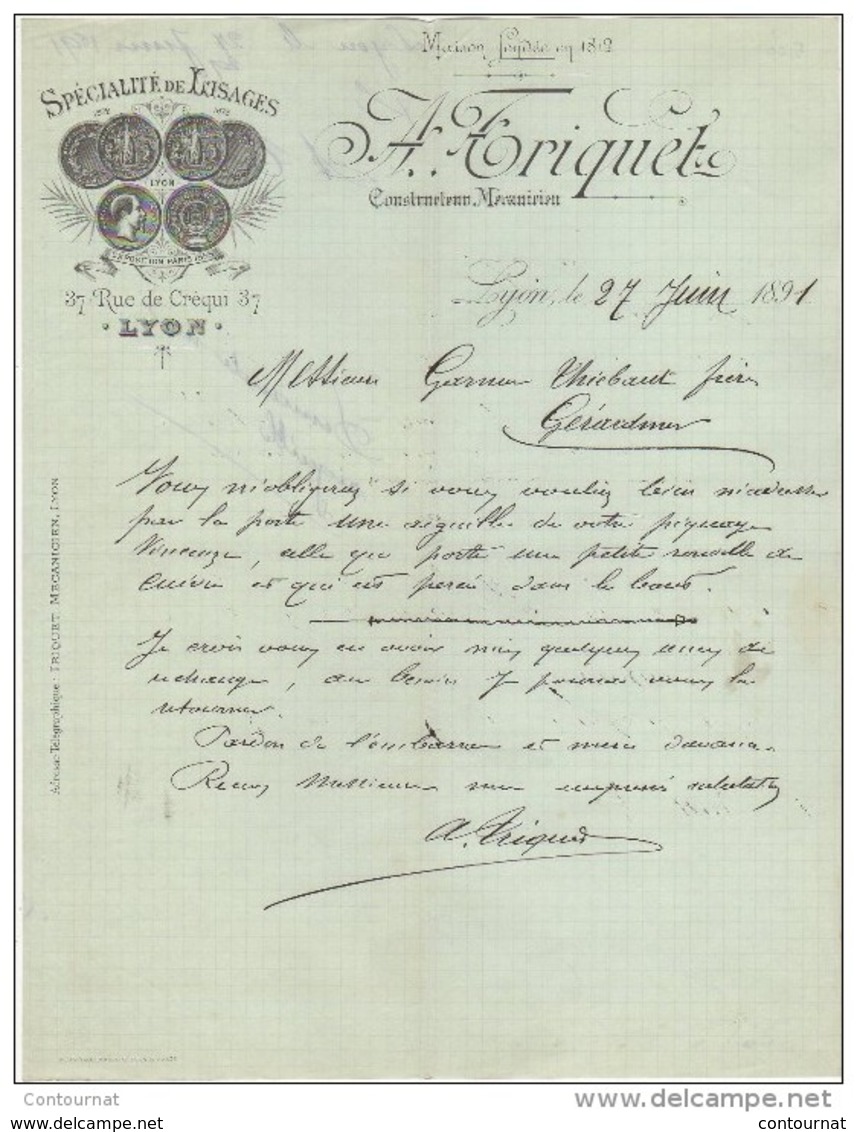 Maison fondée en 1812
SPÉCIALITÉ DE LISAGES
A. Triquet
Constructeur, Mécanicien
LYON
EXPOSITION PARIS
37 Rue de Créqui 37
LYON
Lyon, le 27 Juin 1891
Messieurs Garnier Thiebaut frères
Gérardmer
Vous m'obligerez si vous vouliez bien m'adresser
par la poste une aiguille de votre piquage
Vincenzi, celle qui porte une petite rondelle de
cuivre et qui est percée dans le haut.
Je crois vous en avoir mis quelques unes de
rechange, au besoin je pourrai vous la
retourner.
Pardon de l'embarras et merci d'avance.
Recevez Messieurs mes empressées salutations
A. Triquet
Adresse Télégraphique : TRIQUET MECANICIEN, LYON
delcampe.net
Contournat
Contournat
contournat